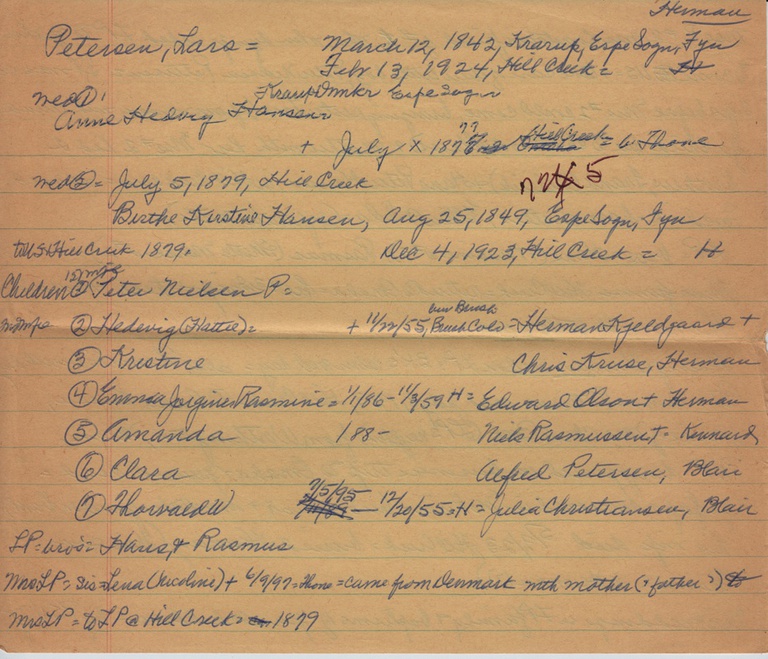 Herman
Petersen, Lars = March 12, 1842, Krarup, Espe Sogn, Fyn
Febr 13, 1924, Hill Creek = H
wed ① Krarup Espe Sogn
Anne Hedvig Hansen =
+ July X 1877 Hill Creek = 6 Thone
wed ② = July 5, 1879, Hill Creek
Birthe Kirstine Hansen, Aug 25, 1849, Espe Sogn, Fyn
to US Hill Creek 1879 = Dec 4, 1923, Hill Creek = H
Children ① Peter Nielsen P =
② Hedevig (Hattie) = + 11/22/55, Brush Colo = Herman Kjeldgaard +
③ Kristine Chris Kruse, Herman
④ Emma Jorgine Rasmine = 1/1/86 - 11/3/59 H = Edward Olson + Herman
⑤ Amanda /88 - Niels Rasmussen + - Kennard
⑥ Clara Alfred Petersen, Blair
⑦ Thorvald W 7/5/95 - 12/20/55 = H = Julia Christiansen, Blair
LP = bros = Hans, + Rasmus
Mrs LP = sis = Lena (Nicoline) + 6/9/97 = Thone = came from Denmark with mother (+ father ?)
Mrs LP = to LP @ Hill Creek = 1879